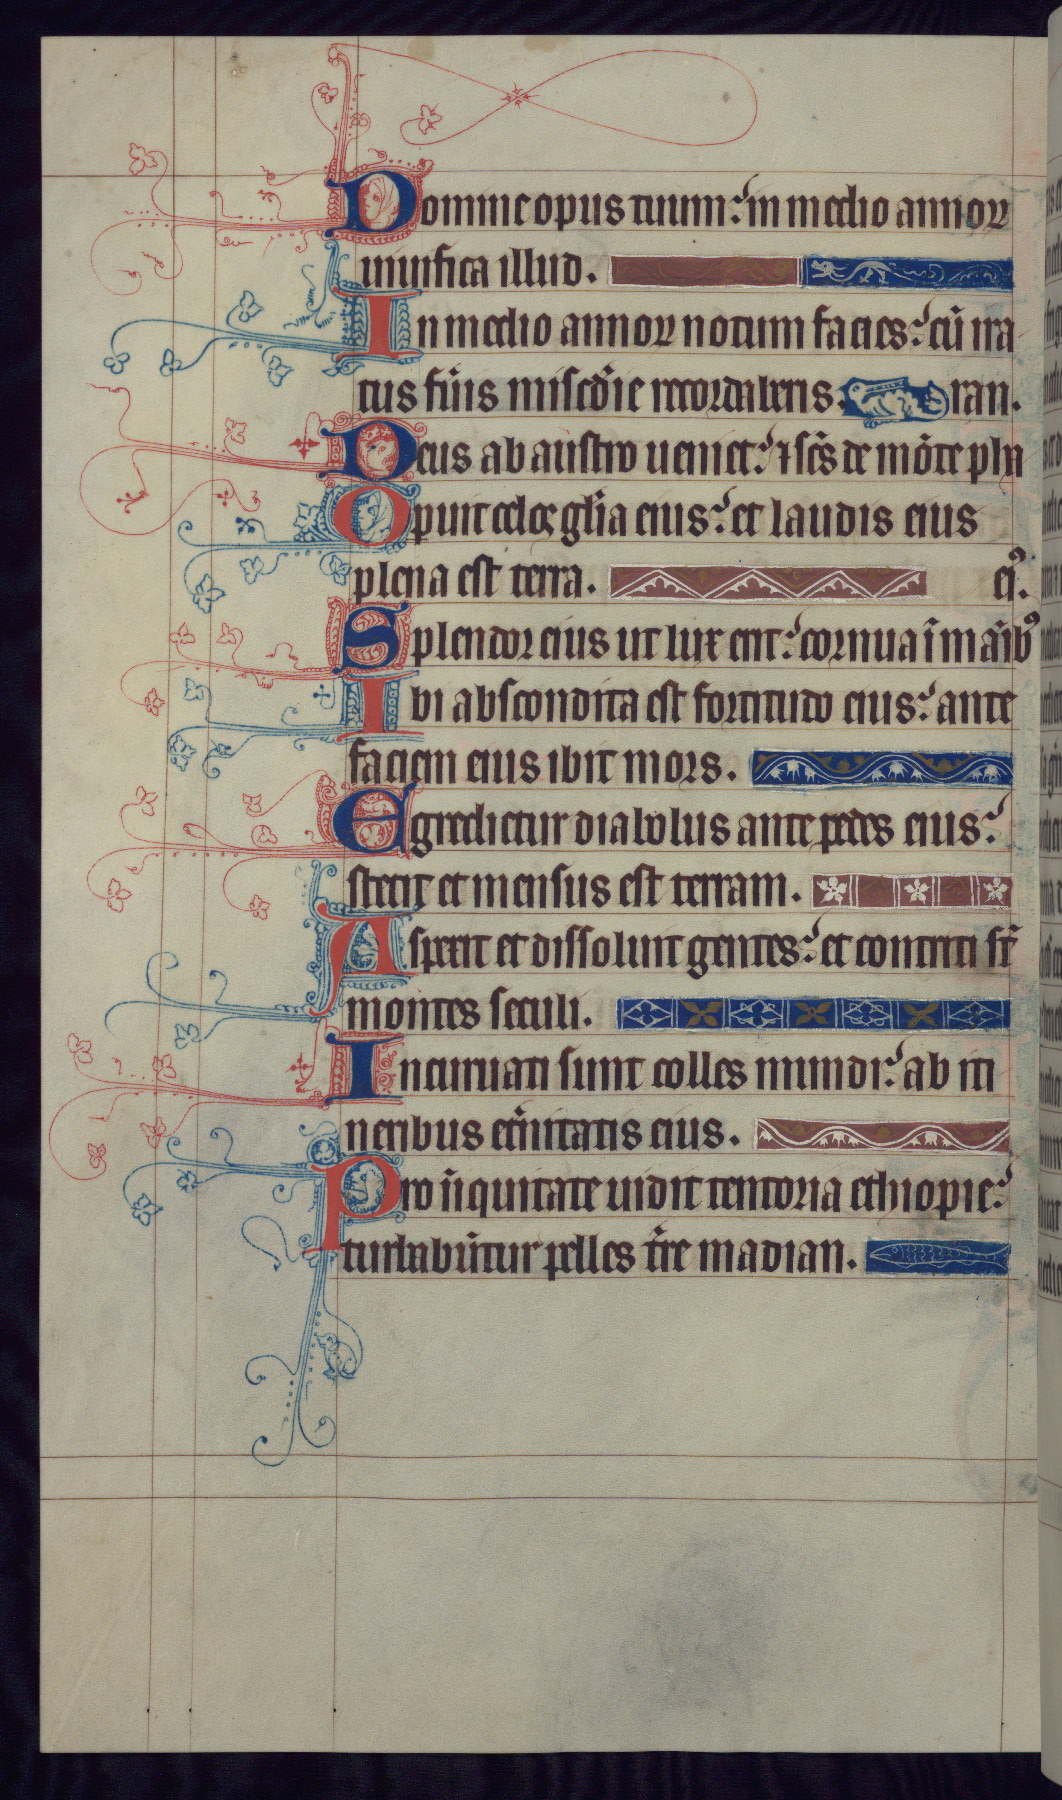 Domine opus tuum: in medio annoꝝ
uiuifica illud.
In medio annoꝝ notum facies: cū ira
tus fu̾is misc̄die recordaberis. ran.
Deus ab austro ueniet: ⁊ sc̄s de mōte pha
Operuit celos gl̄ia eius: et laudis eius
plena est terra. eiꝰ.
Splendor eius ut lux erit: cornua ī manibꝰ
Ibi abscondita est fortitudo eius: ante
faciem eius ibit mors.
Egredietur diabolus ante pedes eius:
stetit et mensus est terram.
Aspexit et dissoluit gentes: et contriti sūt
montes seculi.
Incuruati sunt colles mundi: ab iti
neribus et̾nitatis eius.
Pro iniquitate uidit tentoria ethiopie:
turbabūtur pelles t̾re madian.